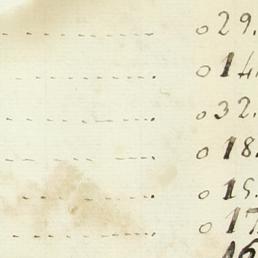 o 29.
o 14.
o 32.
o 18.
o 15.
o 17.
16